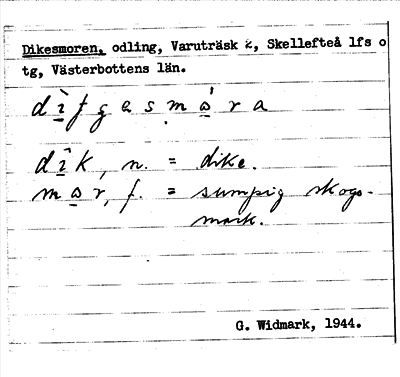 Dikesmoren, odling, Varuträsk 2, Skellefteå lfs o
tg, Västerbottens län.
dìfgesmåra
dîk, n. = dike.
mår, f. = sumpig skogs-
mark.
G. Widmark, 1944.